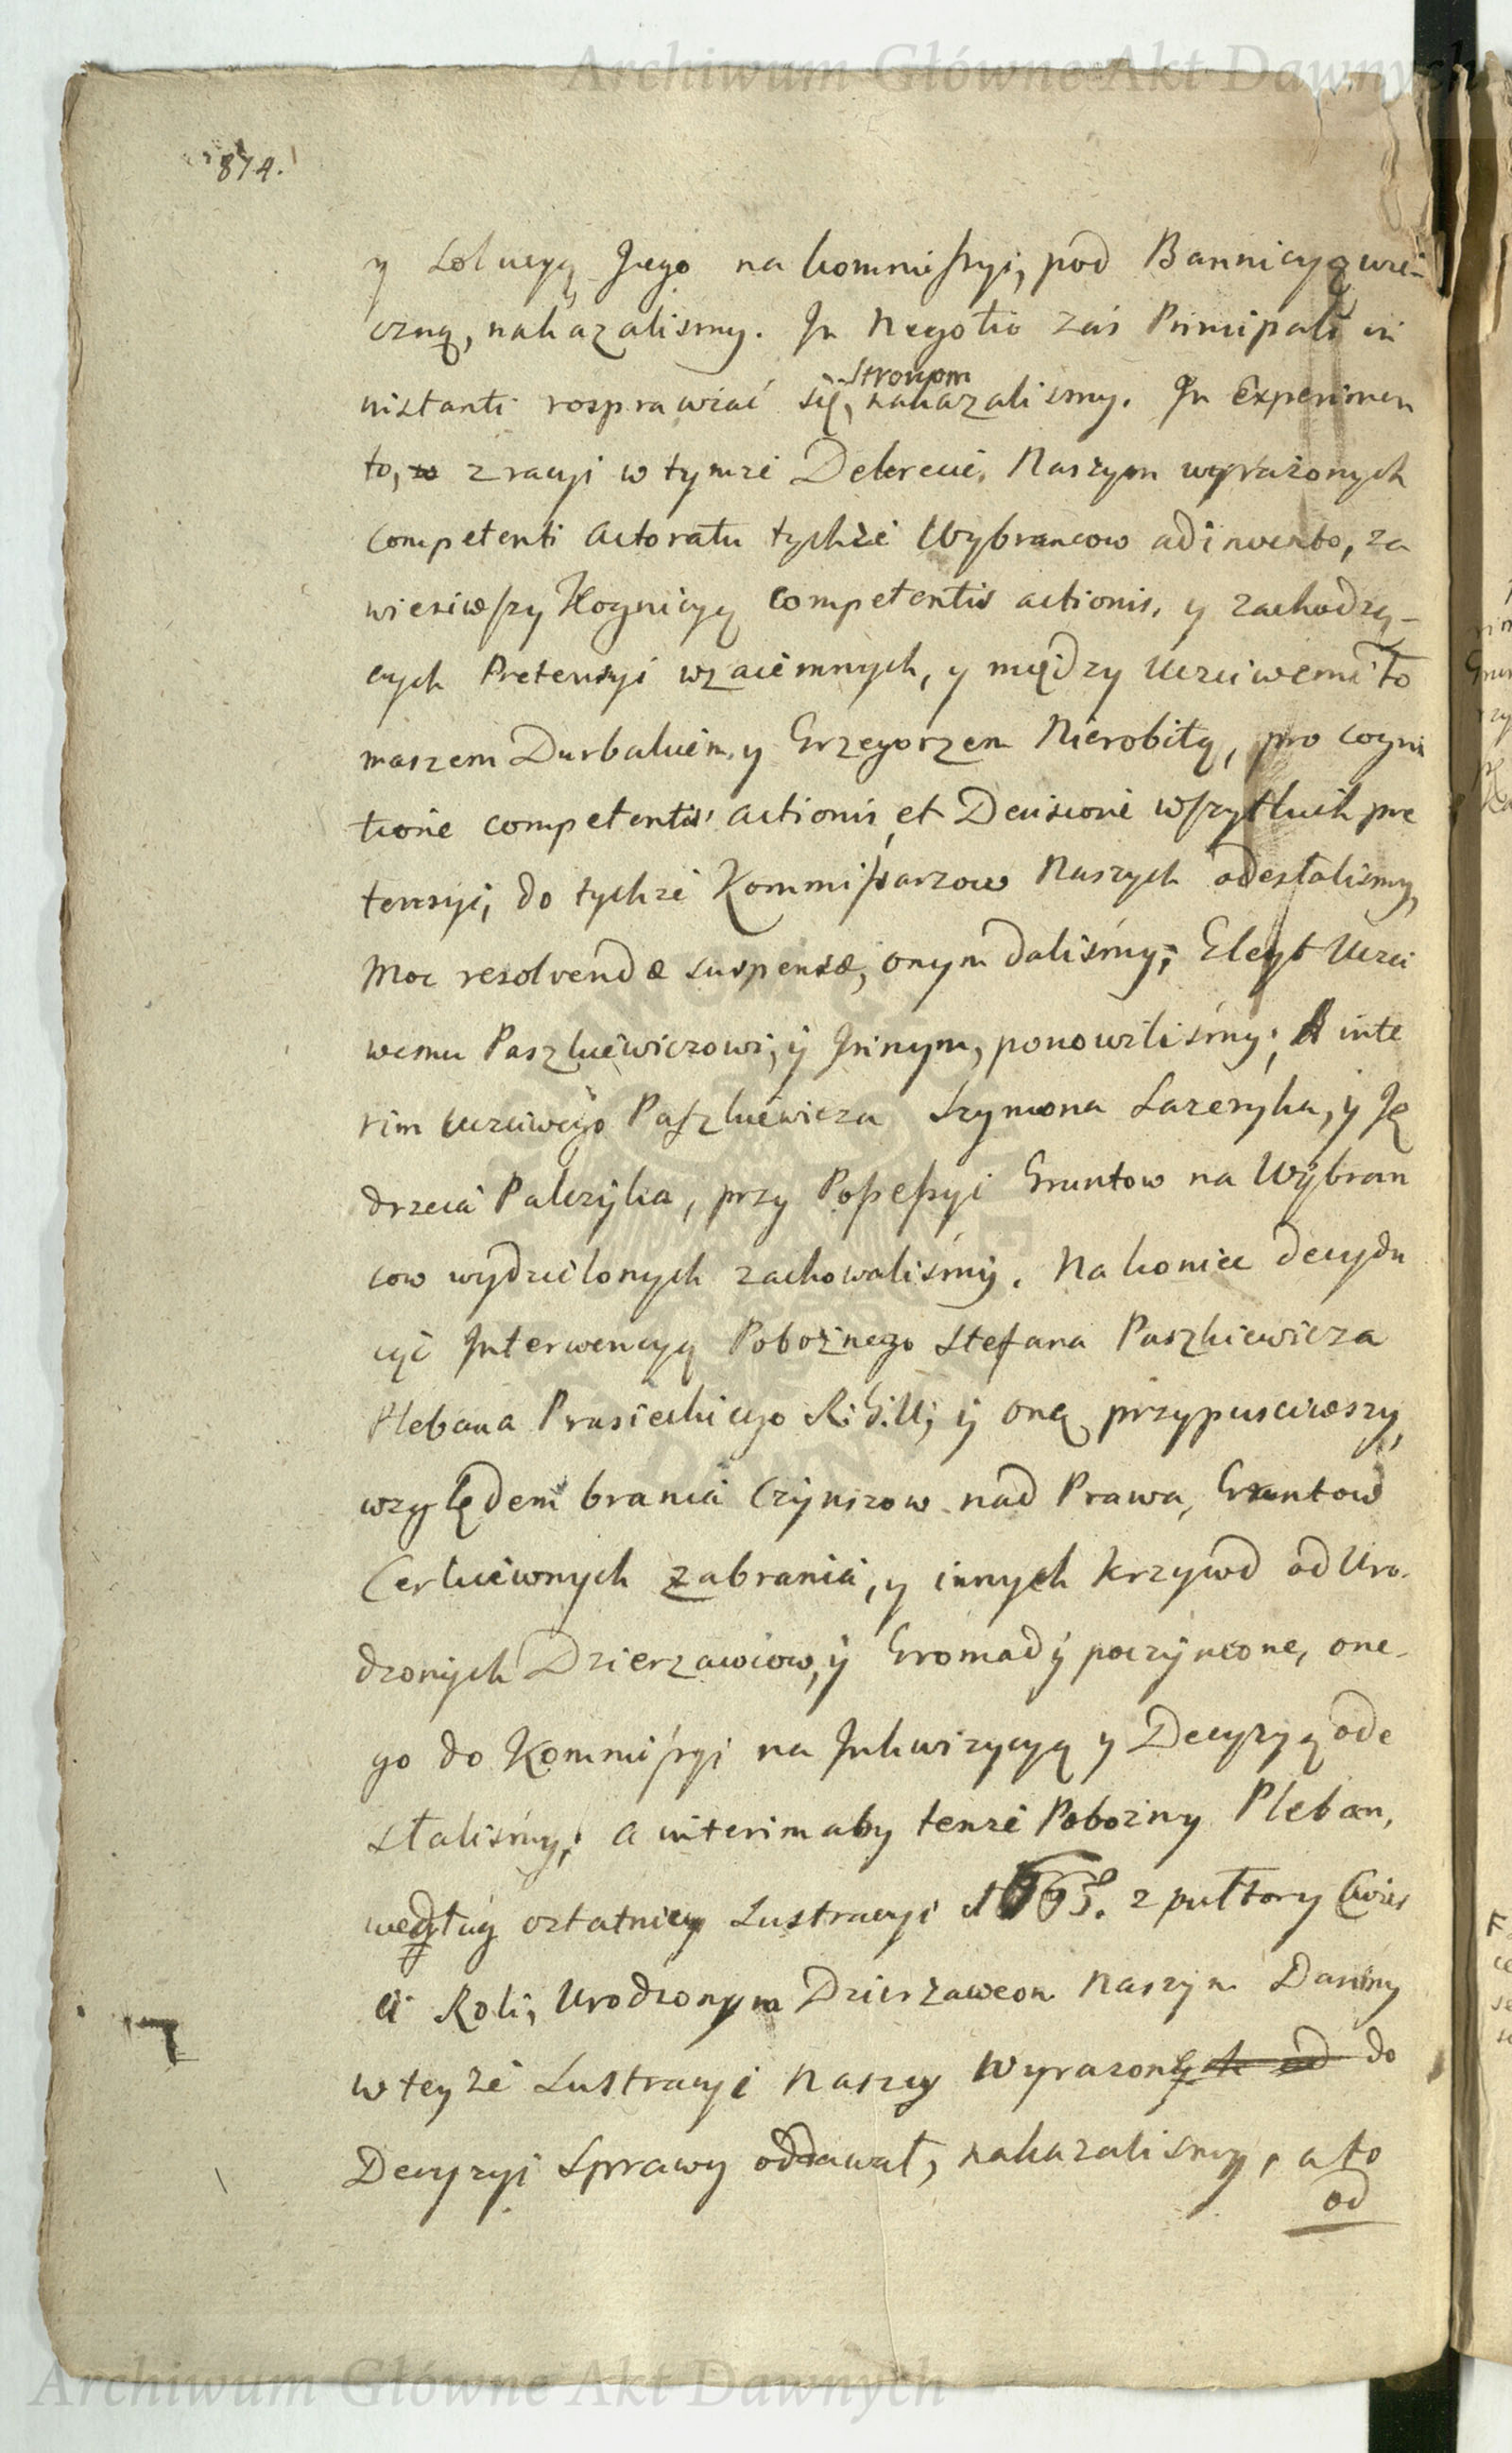 Archiwum Główne Akt Dawnych
874.
y Solucyą Jego na kommissyi, pod Bannicyą wie-
czną, nakazalismy. In Negotio zaś Principali in
instanti rosprawiać się, stronom nakazalismy. In Experimen
to, z racyi w tymże Dekrecie Naszym wyrażonych
competenti actoratu tychże Wybrancow adinvento, za
wiesiwszy Kognicyą competentis actionis, y zachodzą-
cych Pretensyi wzaiemnych, y między Uczciwemi To
maszem Durbakiem, y Grzegorzem Nierobiłą, pro cogni
tione competentis actionis, et Decisione wszytkich pre
tensyi, do tychże Kommissarzow Naszych odesłalismy,
Moc resolvendæ suspensæ, onym daliśmy; Gleyt Uczci
wemu Paszkiewiczowi, ÿ Innym, ponowiliśmy; A inte
rim uczciwego Paszkiewicza Szymona Lazeryka, ÿ Ję
drzeia Palczÿka, przy Possessyi Gruntow na Wÿbran
cow wydzielonych zachowaliśmÿ. Na koniec decydu
iąc Interwencyą Pobożnego Stefana Paszkiewicza
Plebana Prusieckiego R: G: U; ÿ onę przypusciwszy,
względem brania Czÿnszow nad Prawa, Gruntow
Cerkiewnych zabrania, y innych krzywd od Uro-
dzonych Dzierzawcow, ÿ Gromadÿ poczÿnione, one-
go do Kommissyi na Inkwizycyą y Decyzyą ode
słaliśmy; a interim aby tenże Pobożny Pleban,
według ostatniey Lustracyi 1665. z pułtory Cwier
ci Roli, Urodzonym Dzierżawcom Naszÿm Daniny
w teyże Lustracyi Naszey wyrazone do
Decyzyi Sprawy oddawał, nakazalismy, a to
od
Archiwum Główne Akt Dawnych